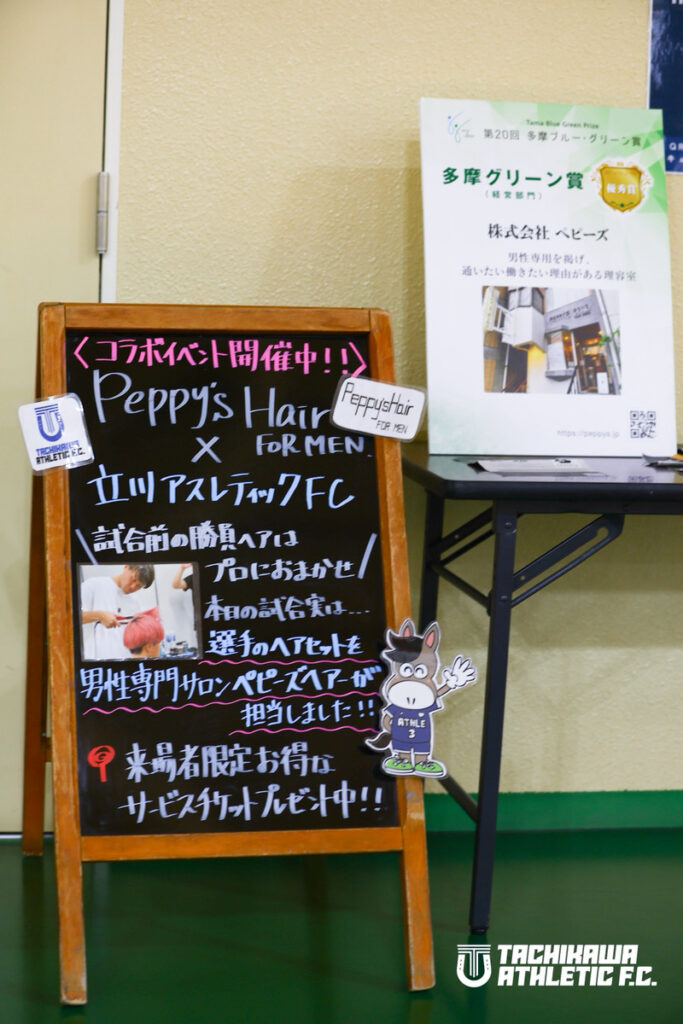 Tama Blue Green Prize
第20回 多摩ブルー・グリーン賞
多摩グリーン賞
(経営部門)
優秀賞
株式会社 ペピーズ
男性専用を掲げ、
通いたい働きたい理由がある理容室
https://peppys.jp
<コラボイベント開催中!!>
Peppy's Hair
FOR MEN.
×
立川アスレティックFC
Peppy'sHair
FOR MEN
TACHIKAWA
ATHLETIC F.C.
\試合前の勝負ヘアは
プロにおまかせ/
本日の試合実は...
選手のヘアセットを
男性専門サロンペピーズヘアーが
担当しました!!
来場者限定お得な
サービスチケットプレゼント中!!
ATHLE
3
TACHIKAWA
ATHLETIC F.C.